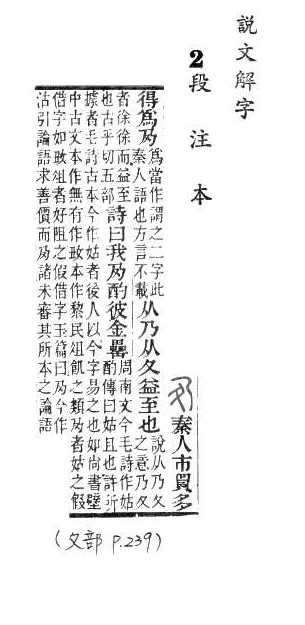 說文解字
2段注本
秦人市買多
得爲夃爲當作謂之二字此
秦人語也方言不載
从乃从夂益至也說从乃夂
之意乃夂
者徐徐而益至
也古乎切五部
詩曰我夃酌彼金罍周南文今毛詩作姑
酌傳曰姑且也許所
據者毛詩古本今作姑者後人以今字易之也如尚書壁
中古文本作無有作本作黎民俎飢之類夃者姑之假
借字如俎者好阻之假借字玉篇曰夃今作
沽引論語求善價而夃諸未審其所本之論語
(夂部 P.239)